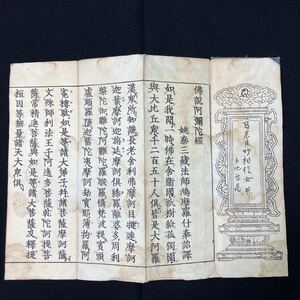 佛說阿彌陀經
姚秦三藏法師鳩摩羅什奉詔譯
如是我聞一時佛在舍衛國祇樹給孤獨園
與大比丘眾千二百五十人俱皆是大阿羅
漢眾所知識長老舍利弗摩訶目揵連摩訶
迦葉摩訶迦旃延摩訶俱絺羅離婆多周利
槃陀伽難陀阿難陀羅睺羅憍梵波提賓頭
盧頗羅墮迦留陀夷摩訶劫賓那薄拘羅阿
㝹樓馱如是等諸大弟子并諸菩薩摩訶薩
文殊師利法王子阿逸多菩薩乾陀訶提菩
薩常精進菩薩與如是等諸大菩薩及釋提
桓因等無量諸天大眾俱